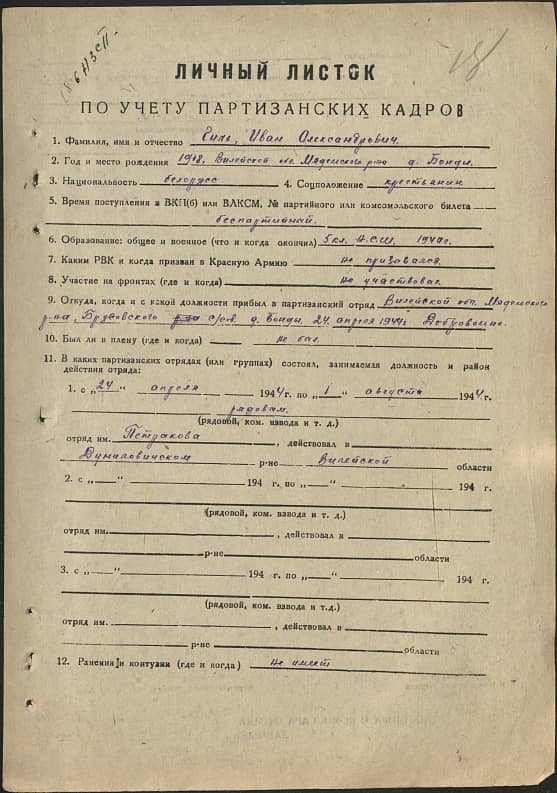 ЛИЧНЫЙ ЛИСТОК
ПО УЧЕТУ ПАРТИЗАНСКИХ КАДРОВ
1. Фамилия, имя и отчество Гиль, Иван Александрович.
2. Год и место рождения 1928. Вилейской об. Мядельского р-на д. Бонды.
3. Национальность белорусс 4. Соцположение крестьянин
5. Время поступления в ВКП(б) или ВЛКСМ, № партийного или комсомольского билета
беспартийный.
6. Образование: общее и военное (что и когда окончил) 5 кл. Н.С.Ш. 1940г.
7. Каким РВК и когда призван в Красную Армию не призывался.
8. Участие на фронтах (где и когда) не участвовал
9. Откуда, когда и с какой должности прибыл в партизанский отряд Вилейской обл. Мядельского
р-на, с/сов. д. Бонды. 24 апреля 1944г Добровольно.
10. Был ли в плену (где и когда) не был.
11. В каких партизанских отрядах (или группах) состоял, занимаемая должность и район
действия отряда:
1. с „24“ апреля 1944г. по „1“ августа 1944г.
рядовым.
(рядовой, ком. взвода и т. д.)
отряд им. Петракова, действовал в
Дуниловичском р-не Вилейской области
2. с „ “ 194 г. по „ “ 194 г.
(рядовой, ком. взвода и т. д.)
отряд им. , действовал в
р-не области
3. с „ “ 194 г. по „ “ 194 г.
(рядовой, ком. взвода и т.д.)
отряд им. , действовал в
р-не области
12. Ранения и контузии (где и когда) не имеет